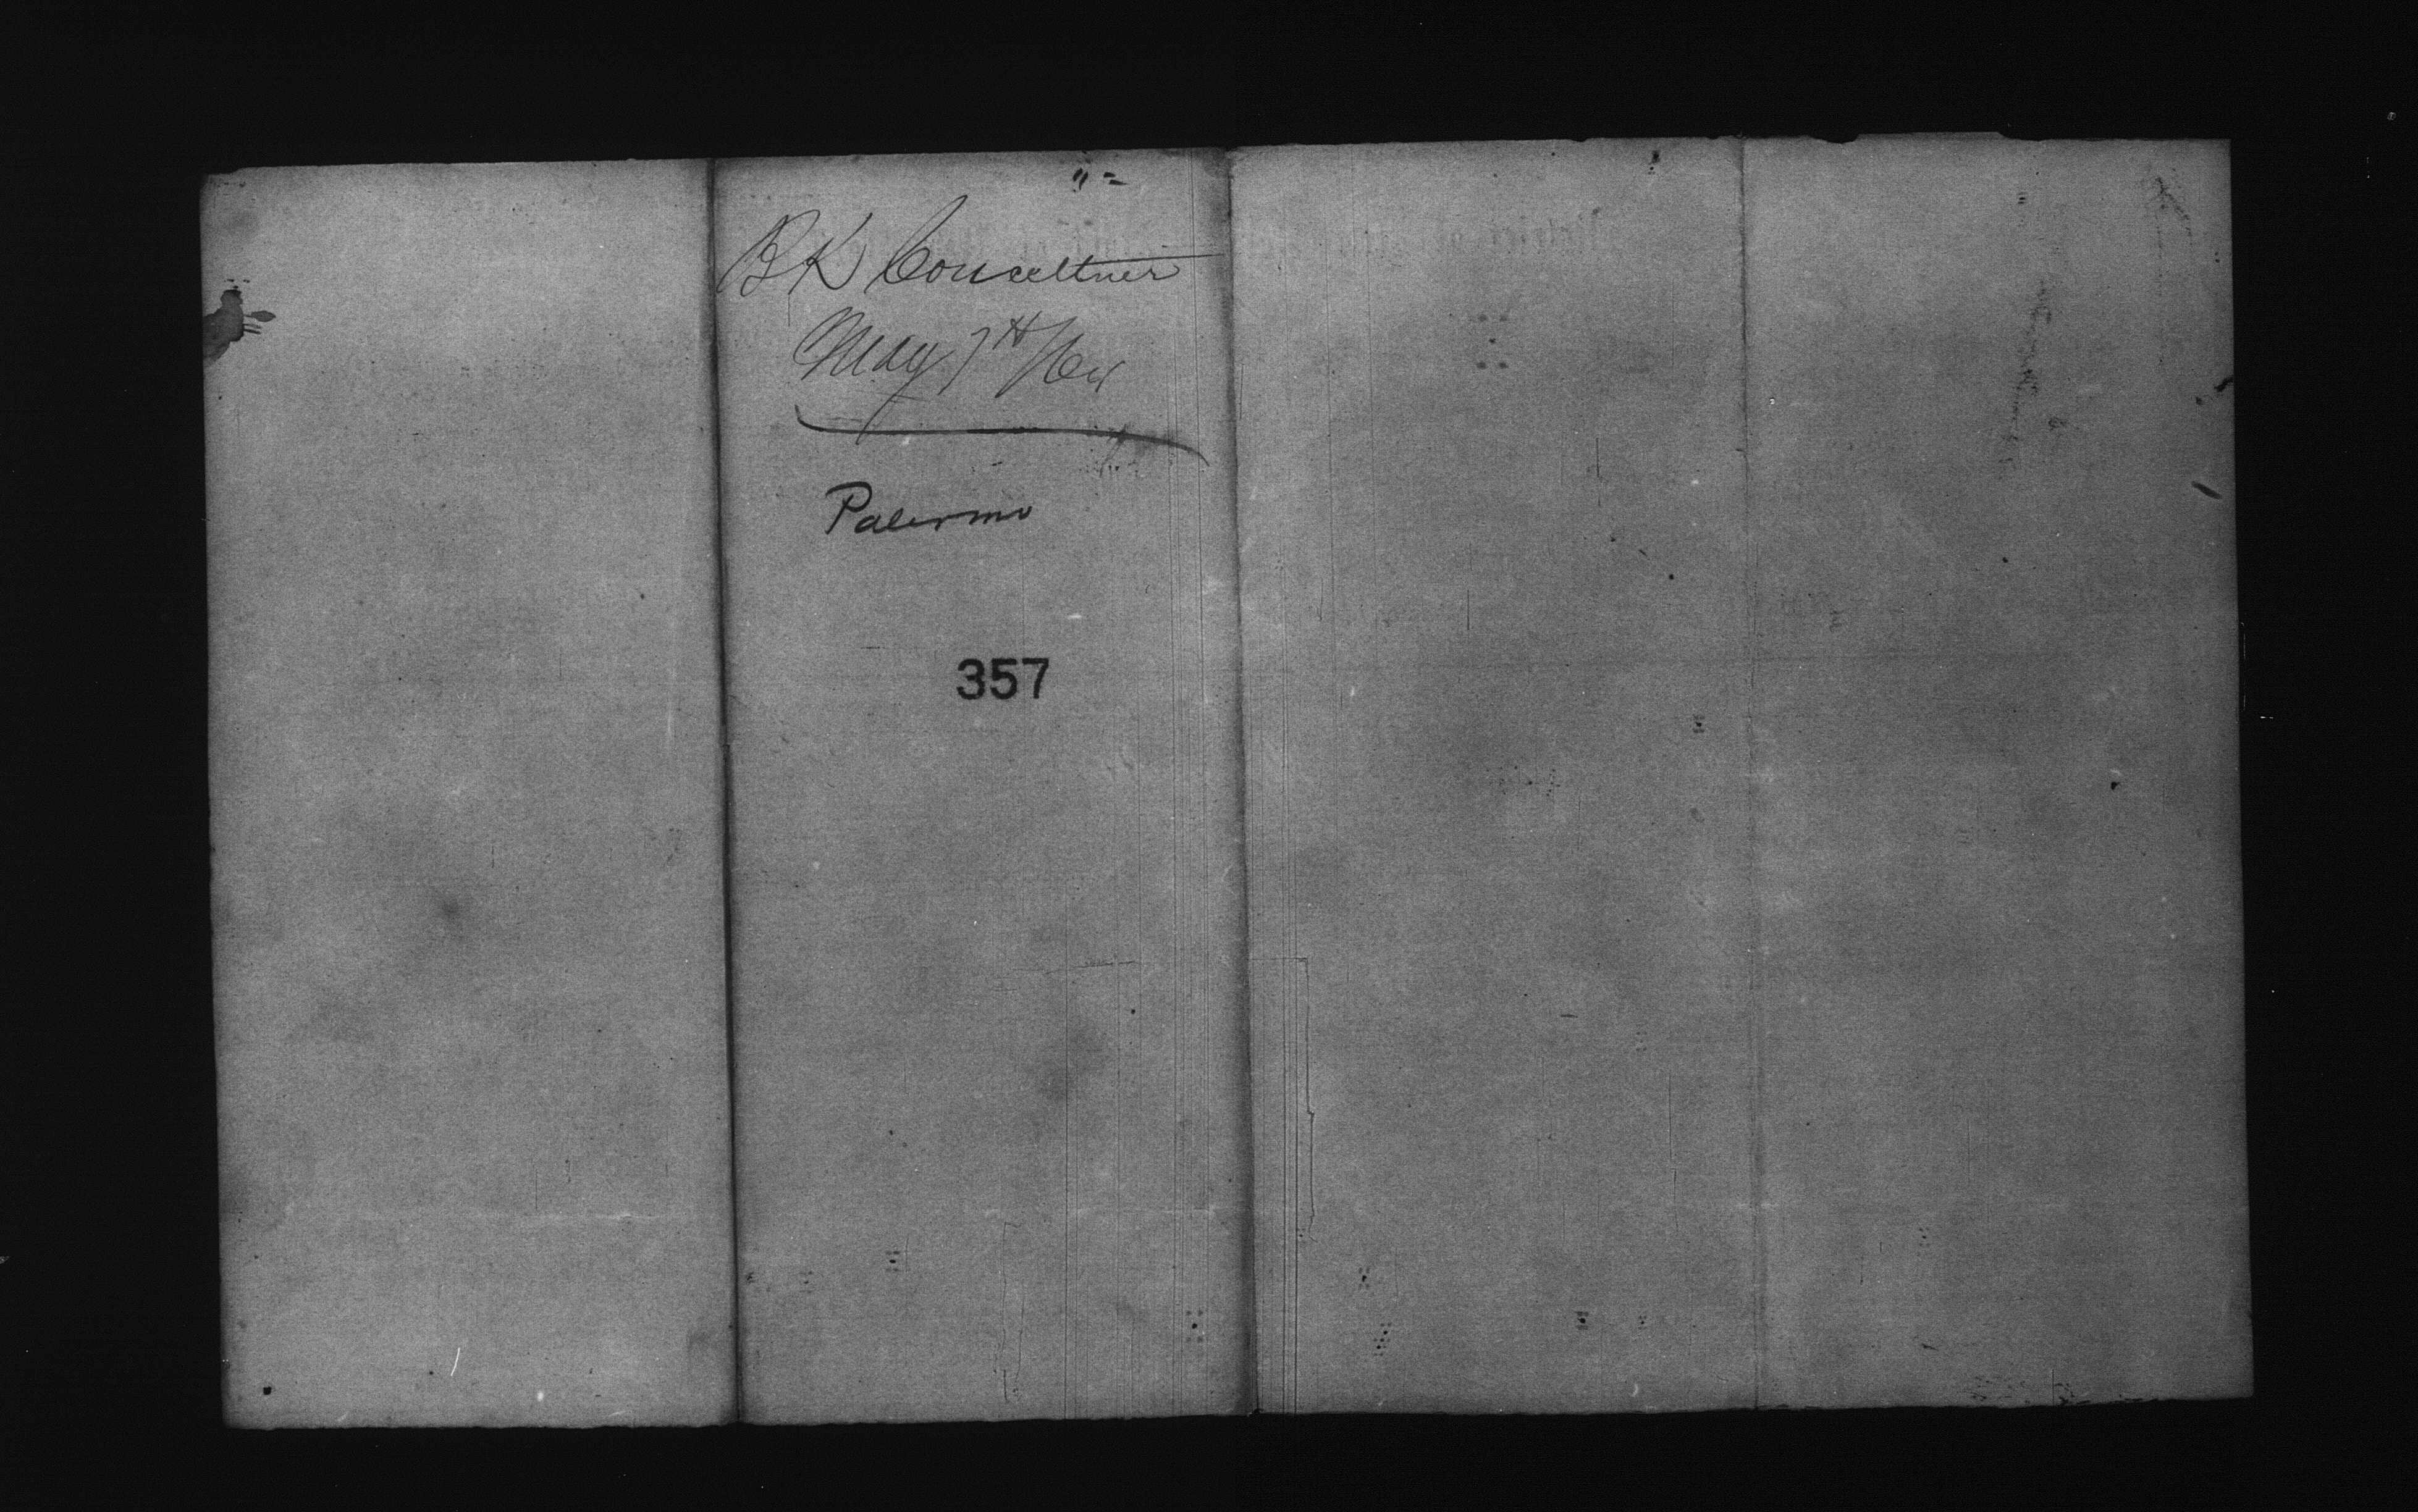 BK Couseltner
May 7th /64
Palermo
357